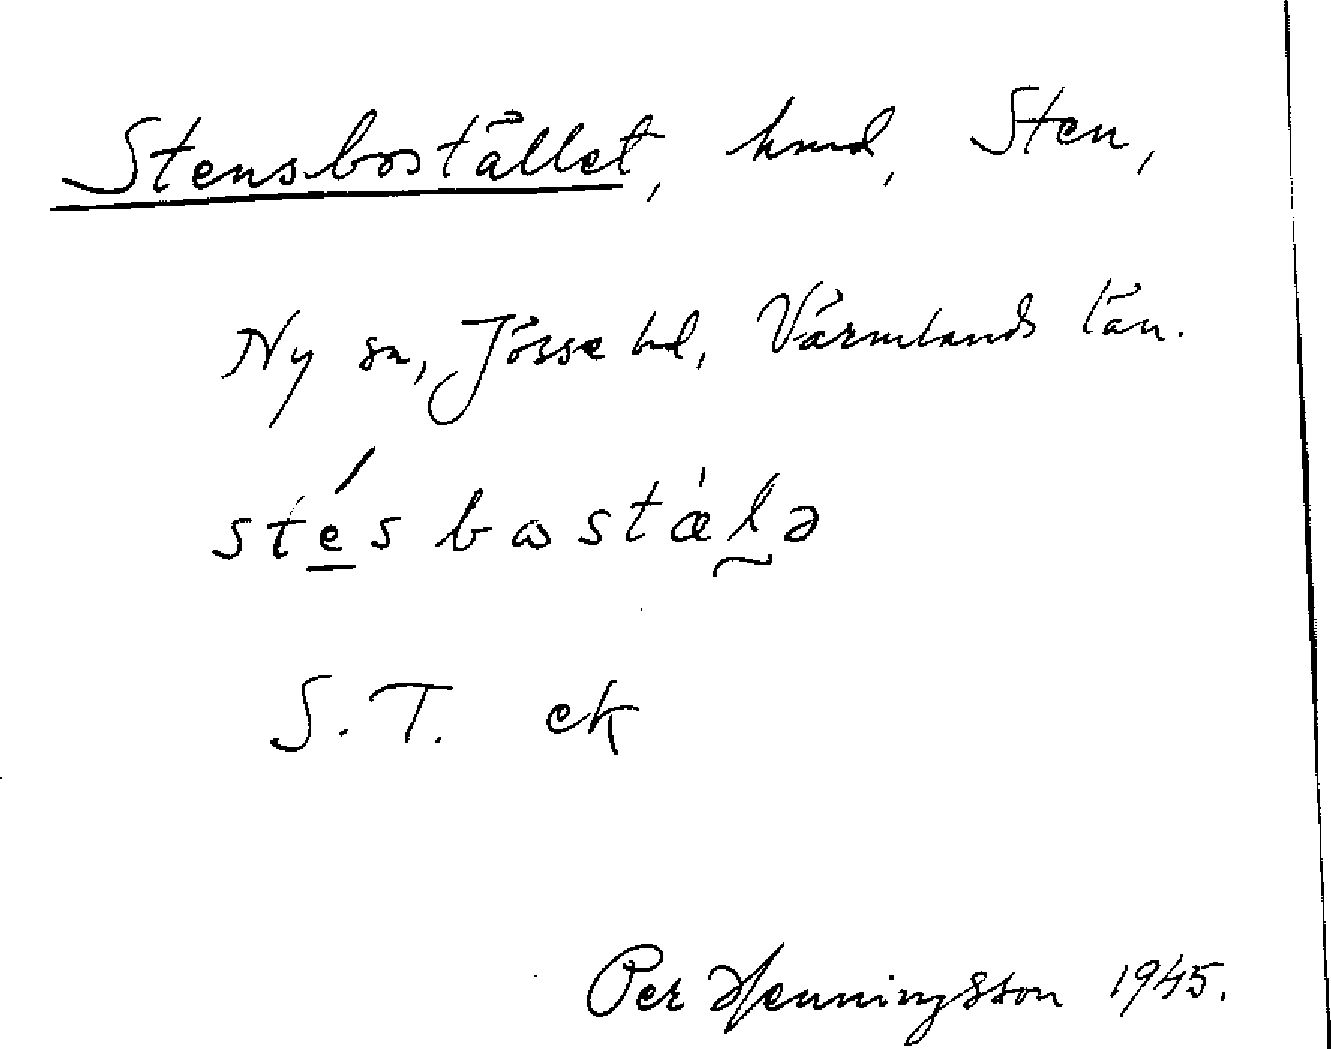 Stensbostället, hmd, Sten,
Ny sn, Jösse hd, Värmlands län.
stésbωstæ̀lə
S. T. ek
Per Henningsson 1945.